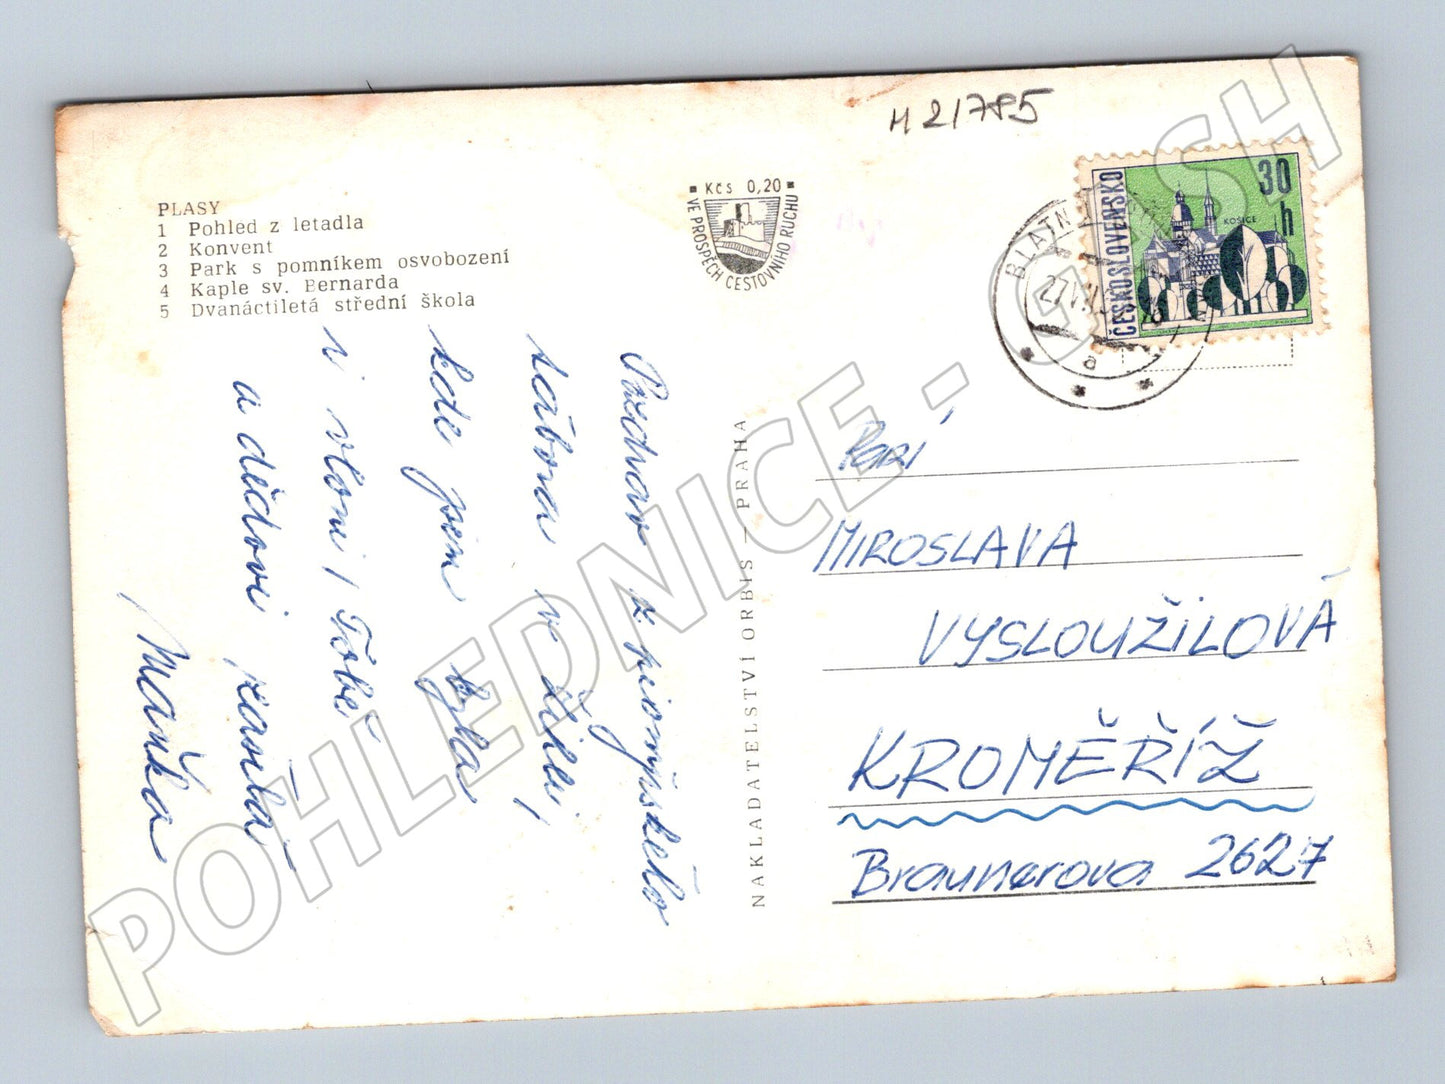 H 21785
PLASY
1 Pohled z letadla
2 Konvent
3 Park s pomníkem osvobození
4 Kaple sv. Bernarda
5 Dvanáctiletá střední škola
Kčs 0,20
VE PROSPĚCH CESTOVNÍHO RUCHU
ČESKOSLOVENSKO
30 h
KOŠICE
BLATN
27.VII
a
Pozdrav z pionýrského
tábora ve Žihli,
kde jsem byla
i vloni, Tobě
a dědovi zasílá
Maňka
NAKLADATELSTVÍ ORBIS – PRAHA
Paní
MIROSLAVA
VYSLOUŽILOVÁ
KROMĚŘÍŽ
Braunerova 2627
POHLEDNICE - CSH